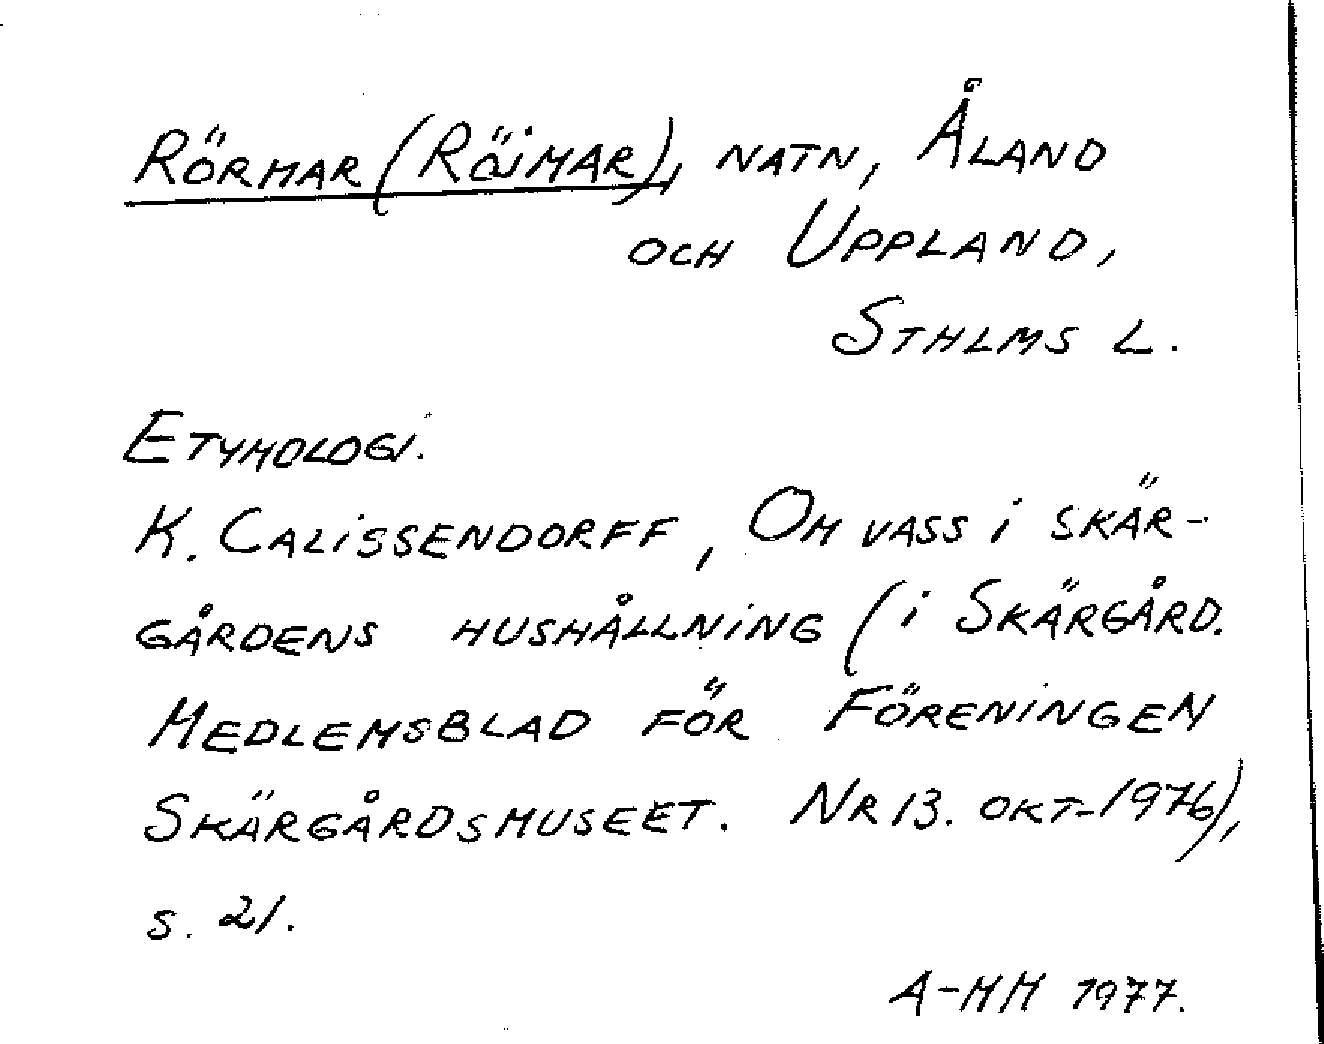 RÖRMAR (RÖJMAR), NATN, ÅLAND
OCH UPPLAND,
STHLMS L.
ETYMOLOGI.
K. CALISSENDORFF, OM VASS I SKÄR-
GÅRDENS HUSHÅLLNING (I SKÄRGÅRD.
MEDLEMSBLAD FÖR FÖRENINGEN
SKÄRGÅRDSMUSEET. NR 13. OKT. 1976),
S. 21.
A-MM 1977.